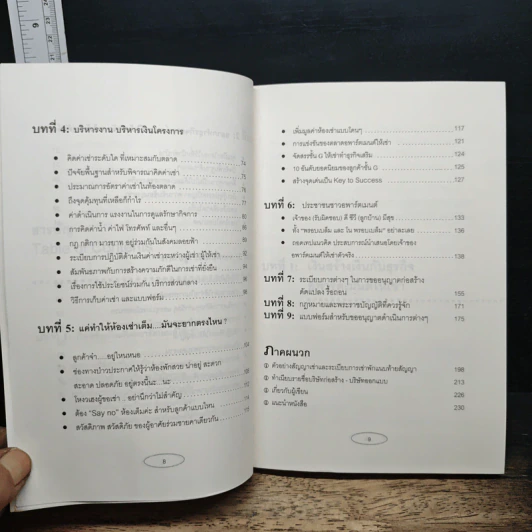 บทที่ 4: บริหารงาน บริหารเงินโครงการ
คิดค่าเช่าระดับใด ที่เหมาะสมกับตลาด
ปัจจัยพื้นฐานสำหรับพิจารณาคิดค่าเช่า
ประมาณการอัตราค่าเช่าในท้องตลาด
ถึงจุดคุ้มทุนที่เหลือก็กำไร
ค่าดำเนินการ แรงงานในการดูแลรักษากิจการ
การคิดค่าน้ำ ค่าไฟ โทรศัพท์ และอื่นๆ
กฎ กติกา มารยาท อยู่ร่วมกันในสังคมลอยฟ้า
ระเบียบการปฏิบัติด้านเงินค่าเช่าระหว่างผู้เช่า ผู้ให้เช่า
สัมพันธภาพกับการสร้างความภักดีในการเช่าที่ยั่งยืน
เรื่องการใช้ประโยชน์ร่วมกัน บริการส่วนกลาง
วิธีการเก็บค่าเช่า และแบบฟอร์ม
บทที่ 5: แค่ทำให้ห้องเช่าเต็ม....มันจะยากตรงไหน ?
ลูกค้าจ๋า....อยู่ไหนหนอ
ช่องทางป่าวประกาศให้รู้ว่าห้องพักสวย น่าอยู่ สะดวก
สะอาด ปลอดภัย อยู่ตรงนี้นะ...นะ
โหงวเฮงผู้ขอเช่า .. อย่านึกว่าไม่สำคัญ
ต้อง "Say no" ห้องเต็มค่ะ สำหรับลูกค้าแบบไหน
สวัสดิภาพ สวัสดิภัย ของผู้อาศัยร่วมชายคาเดียวกัน
8
เพิ่มมูลค่าห้องเช่าแบบไหนๆ 117
การแข่งขันของตลาดอพาร์ตเมนต์ให้เช่า 121
จัดสรรชั้น G ให้เช่าทำธุรกิจเสริม 124
10 อันดับยอดนิยมของลูกค้าชั้น G 125
สร้างจุดเด่นเป็น Key to Success 127
บทที่ 6: ประชาชนชาวอพาร์ตเมนต์
เจ้าของ (รับผิดชอบ) ดี ชีวี (ลูกบ้าน) มีสุข 133
ทั้ง "พรอบเบล้ม และ โน พรอบเบล้ม" อย่าละเลย 136
ถอดเทปแนวคิด ประสบการณ์นำเสนอโดยเจ้าของ
อพาร์ตเมนต์ให้เช่าตัวจริง 138
บทที่ 7: ระเบียบการต่างๆ ในการขออนุญาตก่อสร้าง
ดัดแปลง รื้อถอน 155
บทที่ 8: กฎหมายและพระราชบัญญัติที่ควรรู้จัก 171
บทที่ 9: แบบฟอร์มสำหรับขออนุญาตดำเนินการต่างๆ 175
ภาคผนวก
ตัวอย่างสัญญาเช่าและระเบียบการเช่าพักแนบท้ายสัญญา 198
ทำเนียบรายชื่อบริษัทก่อสร้าง - บริษัทออกแบบ 213
เกี่ยวกับผู้เขียน 226
แนะนำหนังสือ 230
9